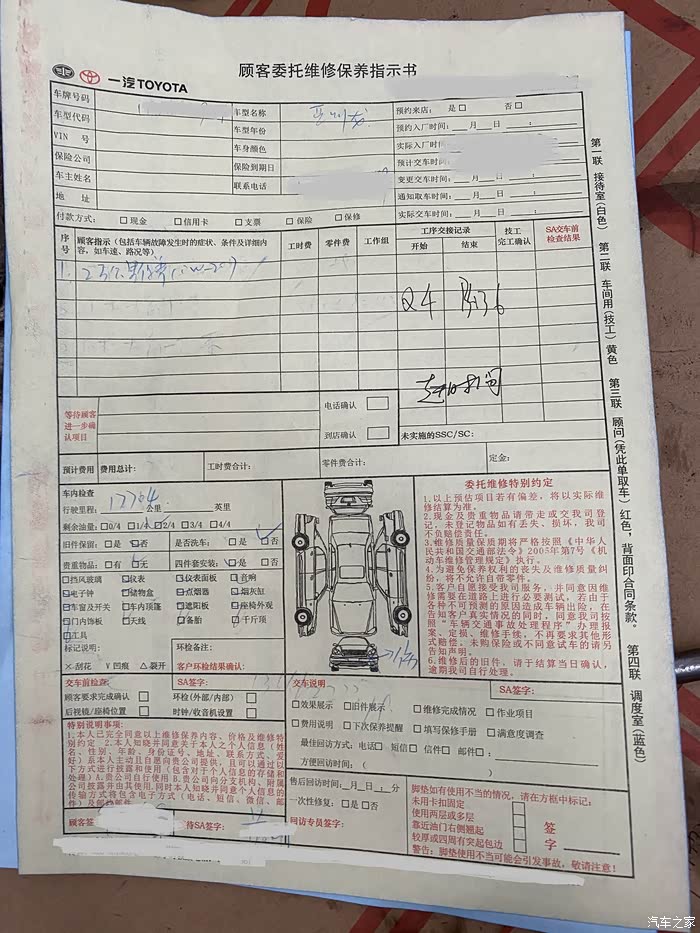 一汽TOYOTA
顾客委托维修保养指示书
车牌号码 车型名称 亚洲龙 预约来店: 是□ 否□
车型代码 车型年份 预约入厂时间: 月 日 :
VIN 号 车身颜色 实际入厂时间:
保险公司 保险到期日 预计交车时间:
车主姓名 联系电话 变更交车时间: 月 日 :
地 址 通知取车时间: 月 日 :
付款方式: □现金 □信用卡 □支票 □保险 □保修 实际交车时间: 月 日 :
序号 顾客指示(包括车辆故障发生时的症状、条件及详细内容,如车速、路况等) 工时费 零件费 工作组 工序交接记录 开始 结束 技工完工确认 SA交车前检查结果
1.
等待顾客进一步确认项目
电话确认 □
到店确认 □
未实施的SSC/SC:
预计费用 费用总计: 工时费合计: 零件费合计: 定金:
车内检查
行驶里程: 17764 公里 英里
剩余油量: □0/4 □1/4 □2/4 □3/4 □4/4
旧件保留: □是 □否 是否洗车: □是 □否
贵重物品: □有 □无 四件套安装: □是 □否
□挡风玻璃 □仪表 □仪表面板 □音响
□电子钟 □储物盒 □点烟器 □烟灰缸
□车窗及开关 □车内顶篷 □遮阳板 □座椅外观
□门内饰板 □天线 □备胎 □千斤顶
□工具
标记说明: 环检备注:
×刮花 ∨凹痕 △裂开 客户环检结果确认:
委托维修特别约定
1.以上预估项目若有偏差,将以实际维修结算为准。
2.现金及贵重物品请带走或交我司登记,未登记物品如有丢失、损坏,我司不负赔偿责任。
3.维修质量保质期将严格按照《中华人民共和国交通部法令》2005年第7号《机动车维修管理规定》执行。
4.为避免保养权利的丧失及维修质量纠纷,将不允许自带零件。
5.客户自愿接受我司服务,并同意因维修需要在道路上进行必要测试,若由于各种不可预测的原因造成车辆出险,在告知客户真实情况的同时,同意我司按照“车辆交通事故处理程序”办理报案、定损、维修手续,不再要求其他形式赔偿。未购保险或不同意试车的请另告知声明。
6.维修后的旧件,请于结算当日确认,逾期我司自行处理。
交车前检查: SA签字:
顾客要求完成确认 □ 环检(外部/内部) □
后视镜/座椅位置 □ 时钟/收音机设置 □
交车说明 SA签字:
□效果展示 □旧件展示 □维修完成情况 □作业项目
□费用说明 □下次保养提醒 □填写保修手册 □满意度调查
最佳回访方式: 电话□ 短信□ 信件□ 邮件□:
方便回访时间: ( )
特别说明事项:
1.本人已完全同意以上维修保养内容、价格及维修特别约定 2.本人知晓并同意关于本人之个人信息(姓名、性别、年龄、身份证号、地址、联系方式、爱好)系本人主动且自愿向贵公司提供,且可以通过以下方式进行披露和使用(包含对于个人信息的存储和处理)A.贵公司自行使用 B.贵公司向分支机构、附属公司披露并由其使用.同时本人知晓并同意个人信息的传输方式将包含电子方式(电话、短信、微信、邮件)及邮寄邮件
顾客签 待SA签字:
售后回访时间: 月 日 : 分
一次性修复: □是 □否
回访专员签字:
脚垫如有使用不当的情况,请在方框中标记:
未用卡扣固定 □
使用两层或多层 □
靠近油门右侧翘起 □
较厚或四周有突起包边 □
签字
警告: 脚垫使用不当可能会引发事故,敬请注意!
第一联 接待室(白色) 第二联 车间用(技工)黄色 第三联 顾问(凭此单取车)红色,背面印合同条款。 第四联 调度室(蓝色)
汽车之家